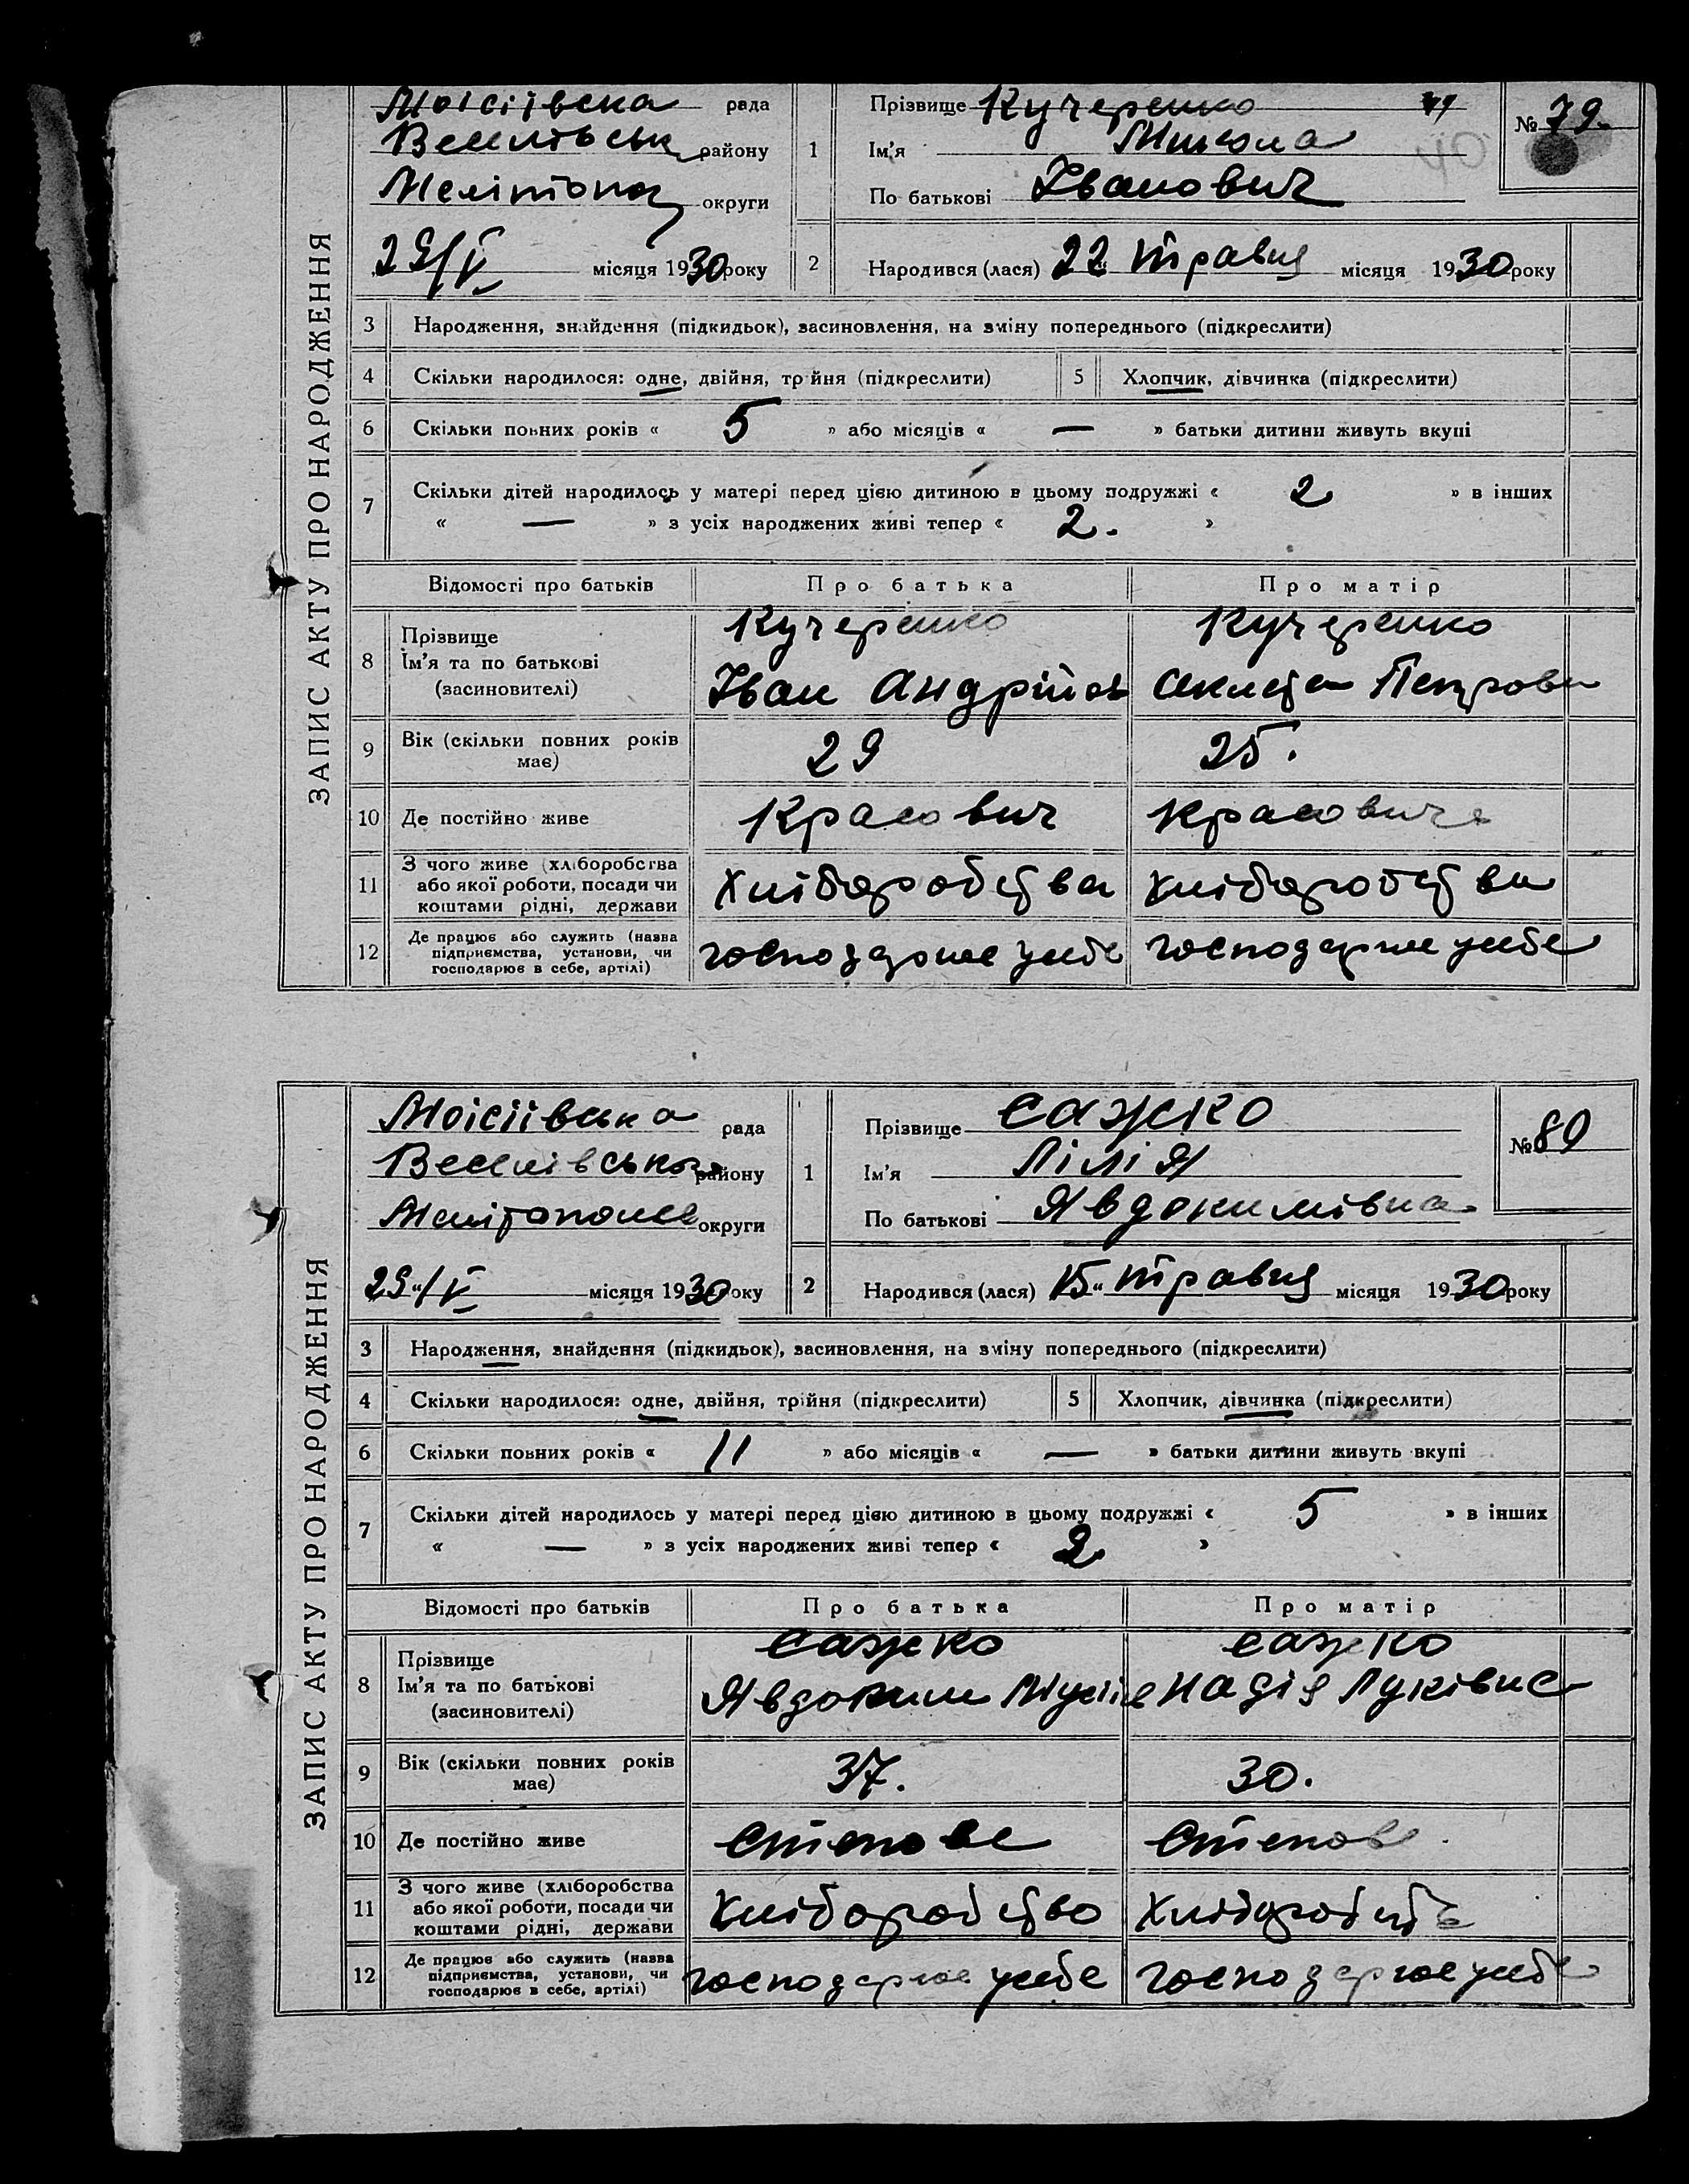 ЗАПИС АКТУ ПРО НАРОДЖЕННЯ
Моісіївська рада
району
округи
29/V місяця 1930 року
1 Прізвище Кучеренко
Ім'я Микола
По батькові Іванович
№ 79.
2 Народився (лася) 22 травня місяця 1930 року
3 Народження, знайдення (підкидьок), засиновлення, на зміну попереднього (підкреслити)
4 Скільки народилося: одне, двійня, трійня (підкреслити) 5 Хлопчик, дівчинка (підкреслити)
6 Скільки повних років « 5 » або місяців « — » батьки дитини живуть вкупі
7 Скільки дітей народилось у матері перед цією дитиною в цьому подружжі « 2 » в інших
« — » з усіх народжених живі тепер « 2. »
Відомості про батьків Про батька Про матір
8 Прізвище Кучеренко Кучеренко
Ім'я та по батькові
(засиновителі) Іван Андрійов
9 Вік (скільки повних років 29 25.
має)
10 Де постійно живе
11 З чого живе (хліборобства
або якої роботи, посади чи Хліборобства Хліборобства
коштами рідні, держави
12 Де працює або служить (назва
підприємства, установи, чи господарює у себе господарює у себе
господарює в себе, артілі)
ЗАПИС АКТУ ПРО НАРОДЖЕННЯ
Моісіївська рада
Веселівського району
округи
29/V місяця 1930 року
1 Прізвище Сажко
Ім'я Лілія
По батькові Явдокимівна
№ 80
2 Народився (лася) 15 травня місяця 1930 року
3 Народження, знайдення (підкидьок), засиновлення, на зміну попереднього (підкреслити)
4 Скільки народилося: одне, двійня, трійня (підкреслити) 5 Хлопчик, дівчинка (підкреслити)
6 Скільки повних років « 11 » або місяців « — » батьки дитини живуть вкупі
7 Скільки дітей народилось у матері перед цією дитиною в цьому подружжі « 5 » в інших
« — » з усіх народжених живі тепер « 2 »
Відомості про батьків Про батька Про матір
8 Прізвище Сажко Сажко
Ім'я та по батькові Явдоким Надія Луківна
(засиновителі)
9 Вік (скільки повних років 37. 30.
має)
10 Де постійно живе Степове Степове
11 З чого живе (хліборобства
або якої роботи, посади чи Хліборобство Хліборобств
коштами рідні, держави
12 Де працює або служить (назва
підприємства, установи, чи господарює у себе господарює у себе
господарює в себе, артілі)